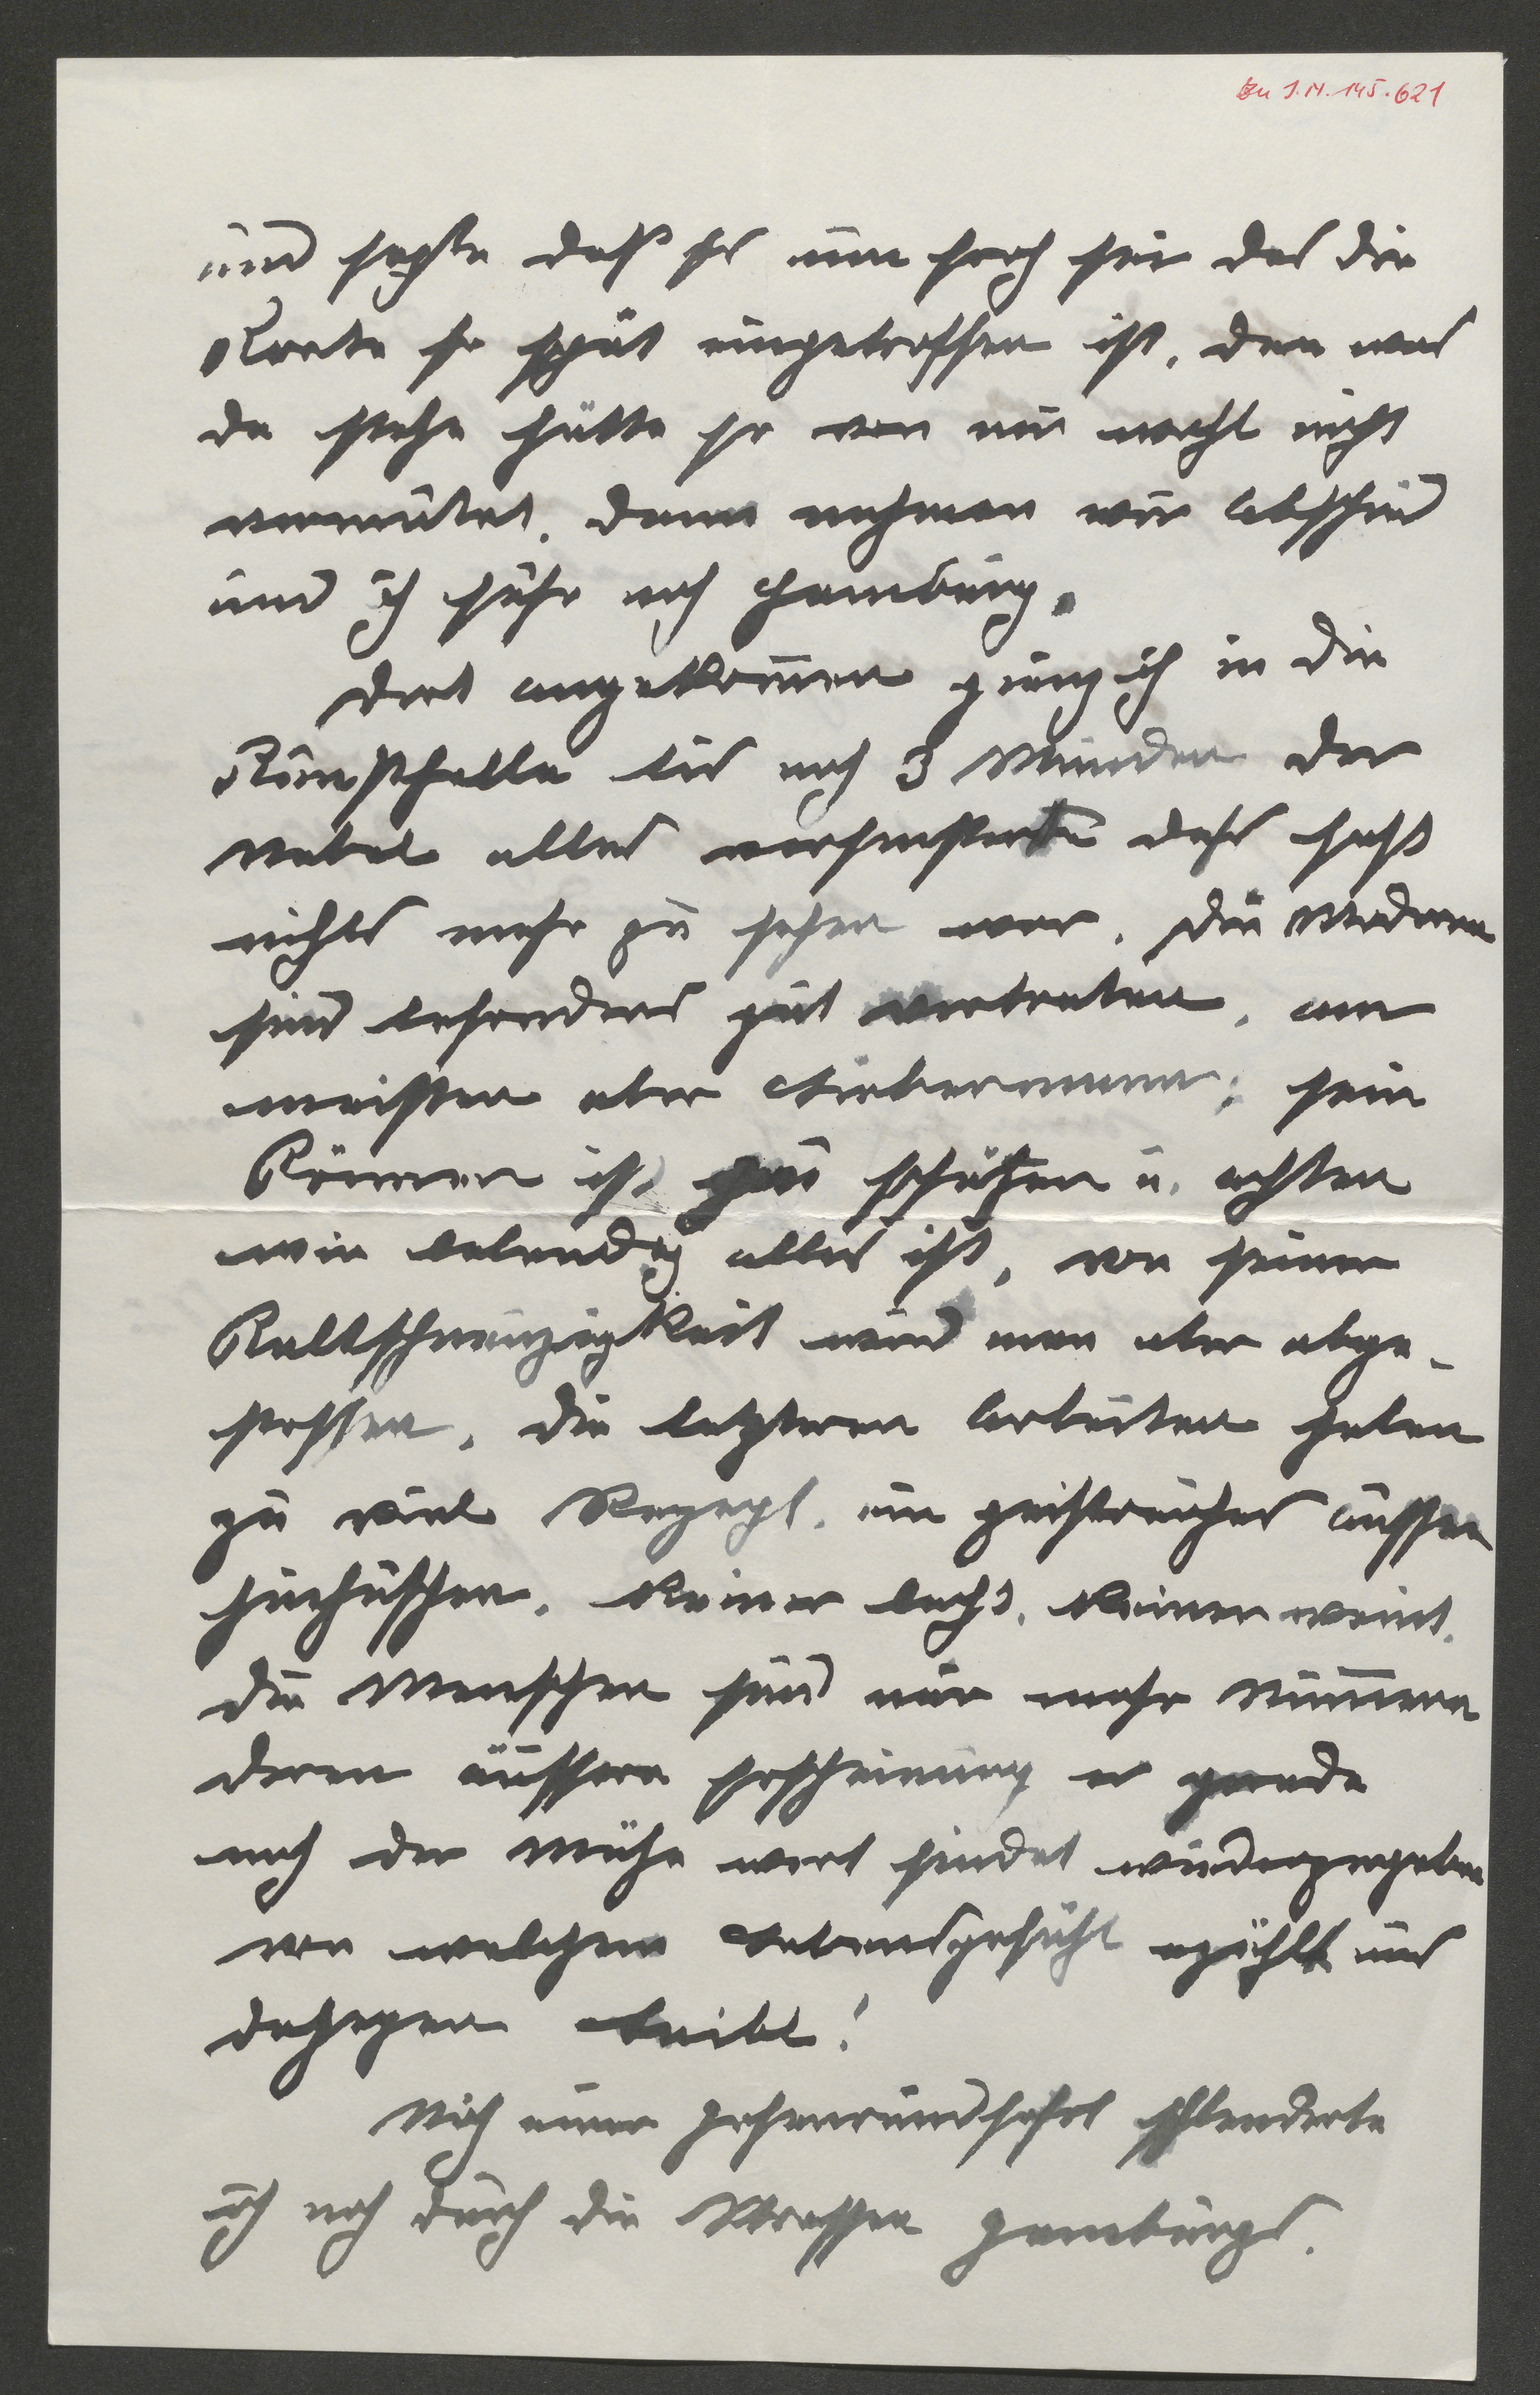 Zu I.N. 145.621
und sagte daß es nun froh sei das die
Karte so spät eingetroffen ist, den was
da stehe hätte er von mir wohl nicht
vermutet. dann nahmen wir Abschied
und ich fuhr nach Hamburg.
Dort angekommen gieng ich in die
Kunsthalle bis nach 3 Stunden der
Nebel alles verfinsterte dass fast
nichts mehr zu sehen war. Die Modernen
sind besonders gut vertreten, am
meisten aber Liebermann; sein
Können ist zu schätzen u. achten
wie lebendig alles ist, von seiner
Kaltschnäuzigkeit wird man aber abge-
stossen. Die letzteren Arbeiten haben
zu viel Rezept. ein geistreiches aussen
hinhuschen. Keiner lacht. Keiner weint.
Die Menschen sind nur mehr Nummern
deren äussere Erscheinung er gerade
noch der Mühe wert findet wiederzugeben
von welchem Lebensgefühl erzählt uns
dagegen Leibl!
Nach einer Hafenrundfahrt schlenderte
ich noch durch die Strassen Hamburgs.